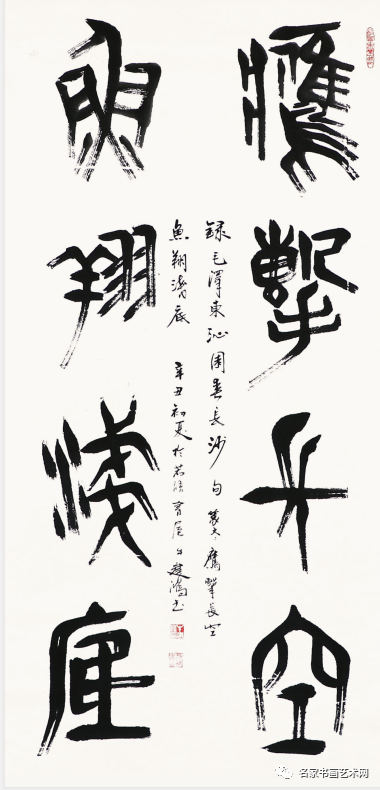 鹰击长空
鱼翔浅底
录毛泽东沁园春长沙句
鹰击长空
鱼翔浅底
辛丑初夏于
书
名家书画艺术网